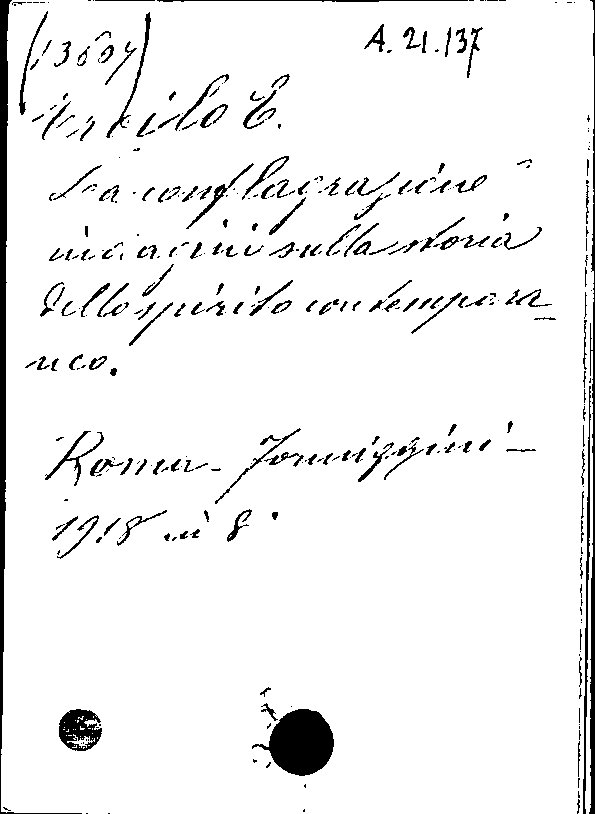 A. 21.137
Troilo E.
La conflagrazione -
indagini sulla storia
dello spirito contempora-
neo.
Roma - Formiggini -
1918 in 8°